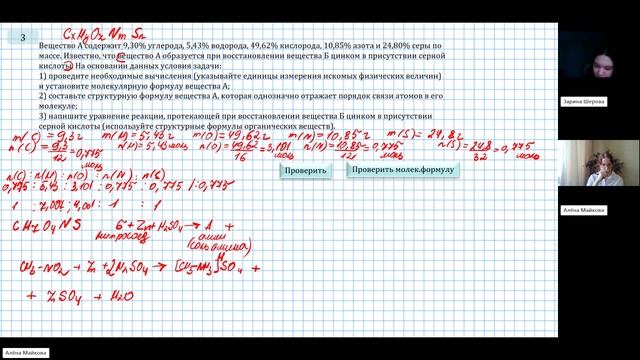 3
CxHyOzNmSn
Вещество А содержит 9,30% углерода, 5,43% водорода, 49,62% кислорода, 10,85% азота и 24,80% серы по
массе. Известно, что вещество А образуется при восстановлении вещества Б цинком в присутствии серной
кислоты. На основании данных условия задачи:
1) проведите необходимые вычисления (указывайте единицы измерения искомых физических величин)
и установите молекулярную формулу вещества А;
2) составьте структурную формулу вещества А, которая однозначно отражает порядок связи атомов в его
молекуле;
3) напишите уравнение реакции, протекающей при восстановлении вещества Б цинком в присутствии
серной кислоты (используйте структурные формулы органических веществ).
m(C) = 9,3г m(H) = 5,43г m(O) = 49,62г m(N) = 10,85г m(S) = 24,8г
n(C) = 9,3/12 = 0,775 моль n(H) = 5,43 моль n(O) = 49,62/16 = 3,101 моль n(N) = 10,85/14 = 0,775 моль n(S) = 24,8/32 = 0,775 моль
Проверить
Проверить молек.формулу
n(C) : n(H) : n(O) : n(N) : n(S)
0,775 : 5,43 : 3,101 : 0,775 : 0,775 | : 0,775
1 : 7,007 : 4,001 : 1 : 1
CH7O4NS
Б + Zn + H2SO4 → А +
нитросоед.
амин
(соль амина)
CH3-NO2 + Zn + H2SO4 → [CH3-NH3]SO4 +
+ ZSO4 + H2O
Зарина Шерова
Алёна Майкова
Алёна Майкова